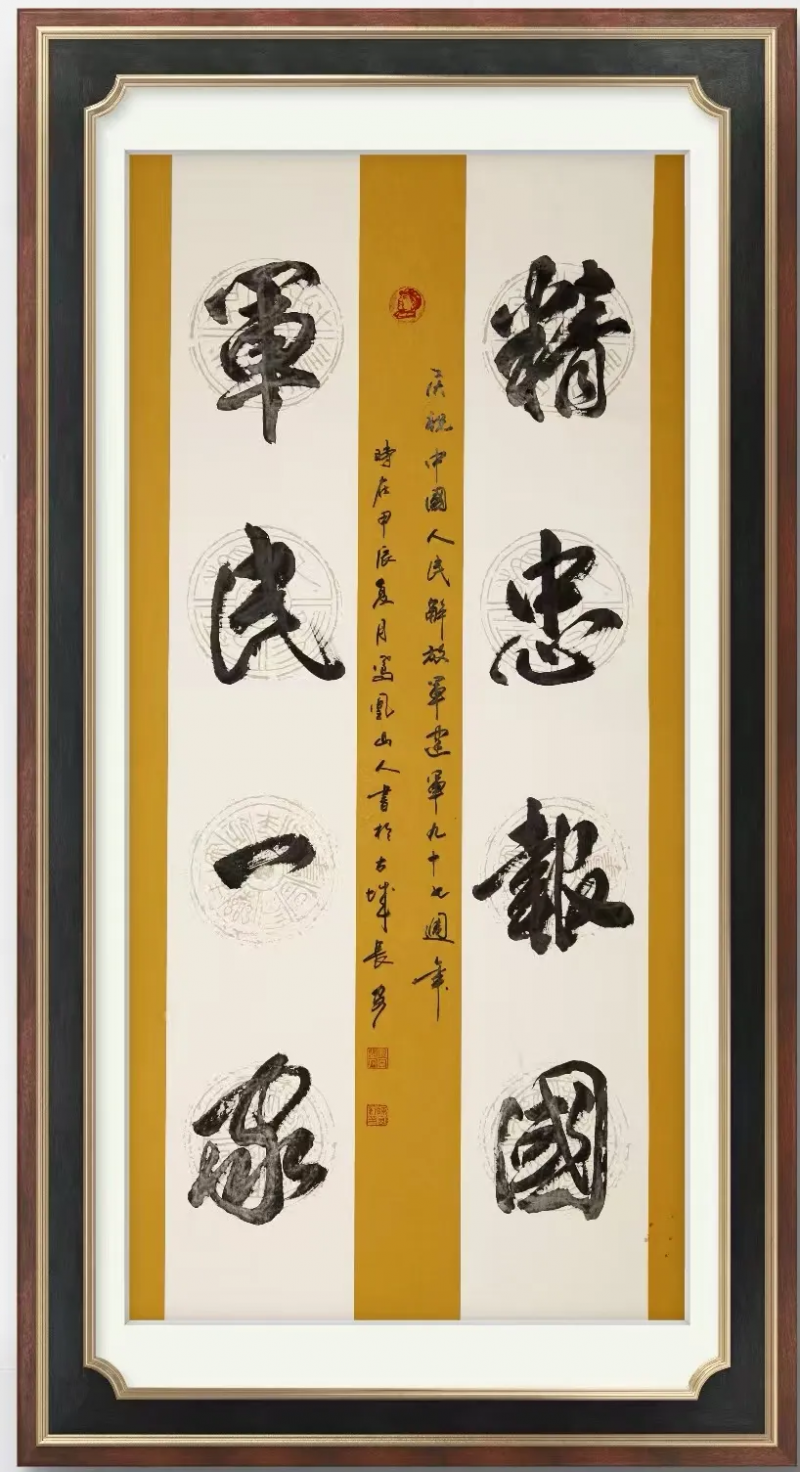 精忠報國
庆祝中國人民解放軍建軍九十七週年
時在甲辰夏月鳳凰山人書於古城長安
軍民一家